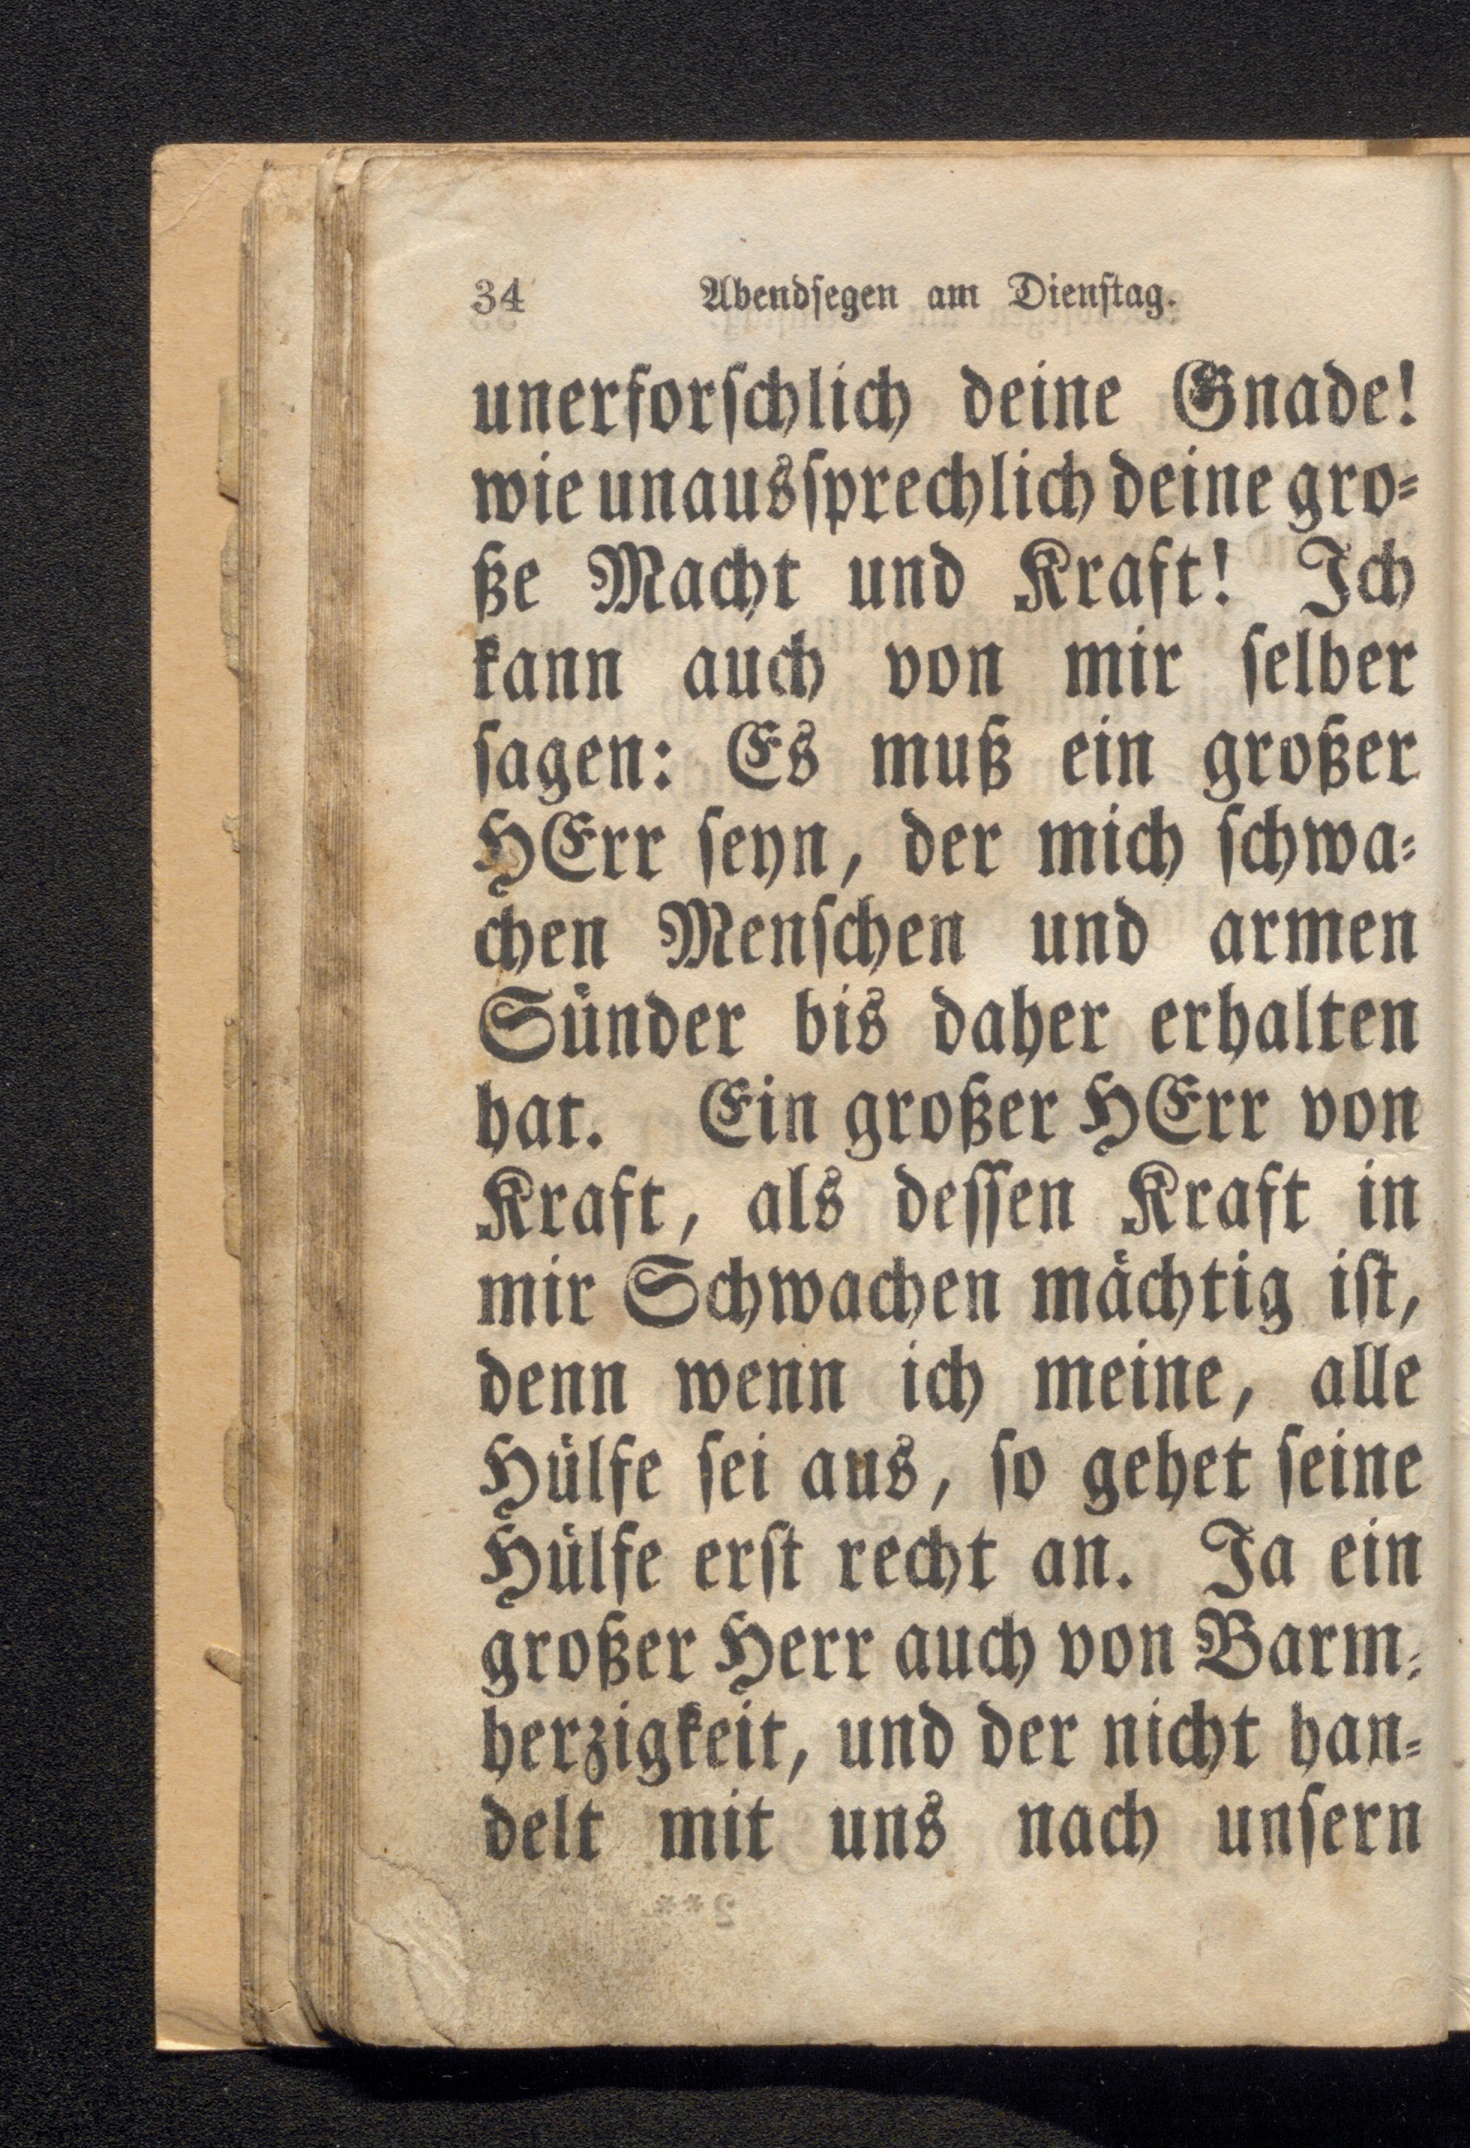 34 Abendſegen am Dienſtag.
unerforſchlich deine Gnade!
wie unausſprechlich deine gro⸗
ße Macht und Kraft! Ich
kann auch von mir ſelber
ſagen: Es muß ein großer
HErr ſeyn, der mich ſchwa⸗
chen Menſchen und armen
Sünder bis daher erhalten
hat. Ein großer HErr von
Kraft, als deſſen Kraft in
mir Schwachen mächtig iſt,
denn wenn ich meine, alle
Hülfe ſei aus, ſo gehet ſeine
Hülfe erſt recht an. Ja ein
großer Herr auch von Barm⸗
herzigkeit, und der nicht han⸗
delt mit uns nach unſern